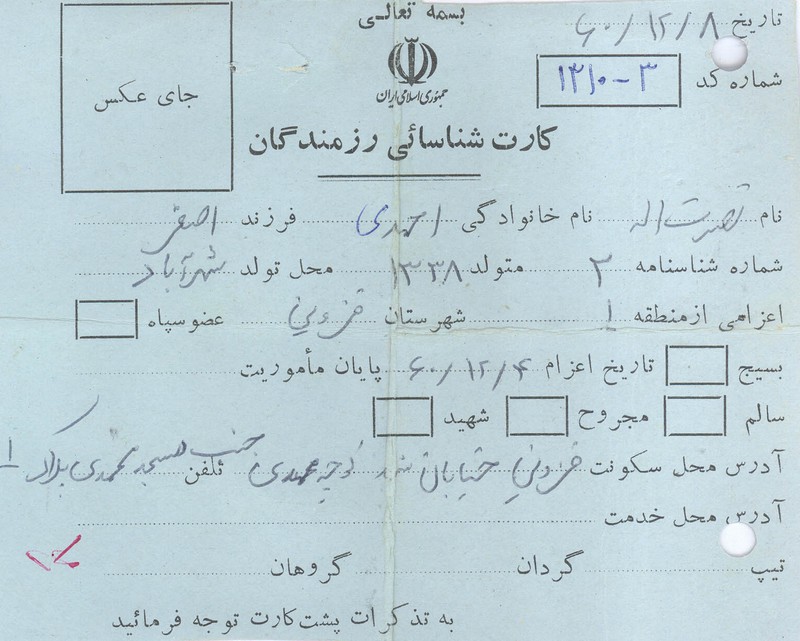 بسمه تعالی
تاریخ ۶۰/۱۲/۸
جمهوری اسلامی ایران
شماره کد ۱۲۱۰-۳
جای عکس
کارت شناسائی رزمندگان
نام نصرت اله نام خانوادگی احمدی فرزند اصغر
شماره شناسنامه ۲ متولد ۱۳۳۸ محل تولد شهرآباد
اعزامی از منطقه ۱ شهرستان قزوین عضو سپاه
بسیج تاریخ اعزام ۶۰/۱۲/۴ پایان مأموریت
سالم مجروح شهید
آدرس محل سکونت قزوین خیابان کوچه مهدی جنب مسجد محمدی پلاک ۱ تلفن
آدرس محل خدمت
تیپ گردان گروهان
به تذکرات پشت کارت توجه فرمائید